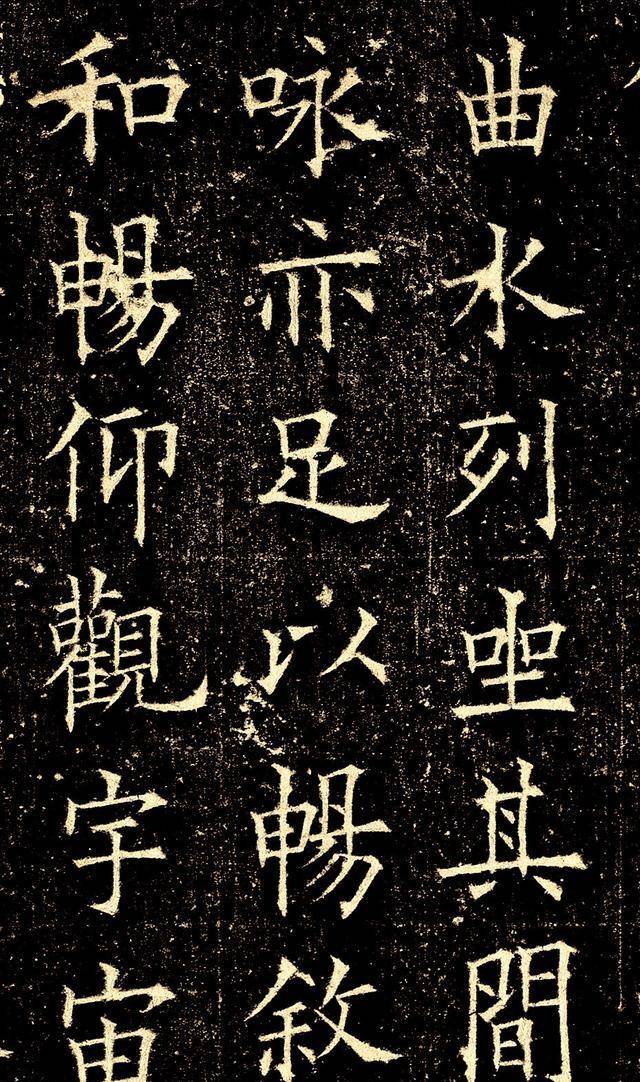 曲水列坐其間
咏亦足以暢敘
和暢仰觀宇宙